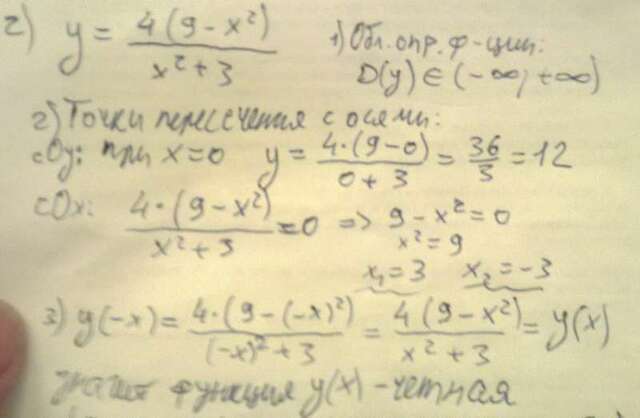 г) y = 4(9 - x²) / x² + 3 1) Обл. опр. ф-ции:
D(y) ∈ (-∞; +∞)
2) Точки пересечения с осями:
с Oy: при x = 0 y = 4·(9 - 0) / 0 + 3 = 36/3 = 12
с Ox: 4·(9 - x²) / x² + 3 = 0 => 9 - x² = 0
x² = 9
x₁ = 3 x₂ = -3
3) y(-x) = 4·(9 - (-x)²) / (-x)² + 3 = 4(9 - x²) / x² + 3 = y(x)
значит функция y(x) - четная